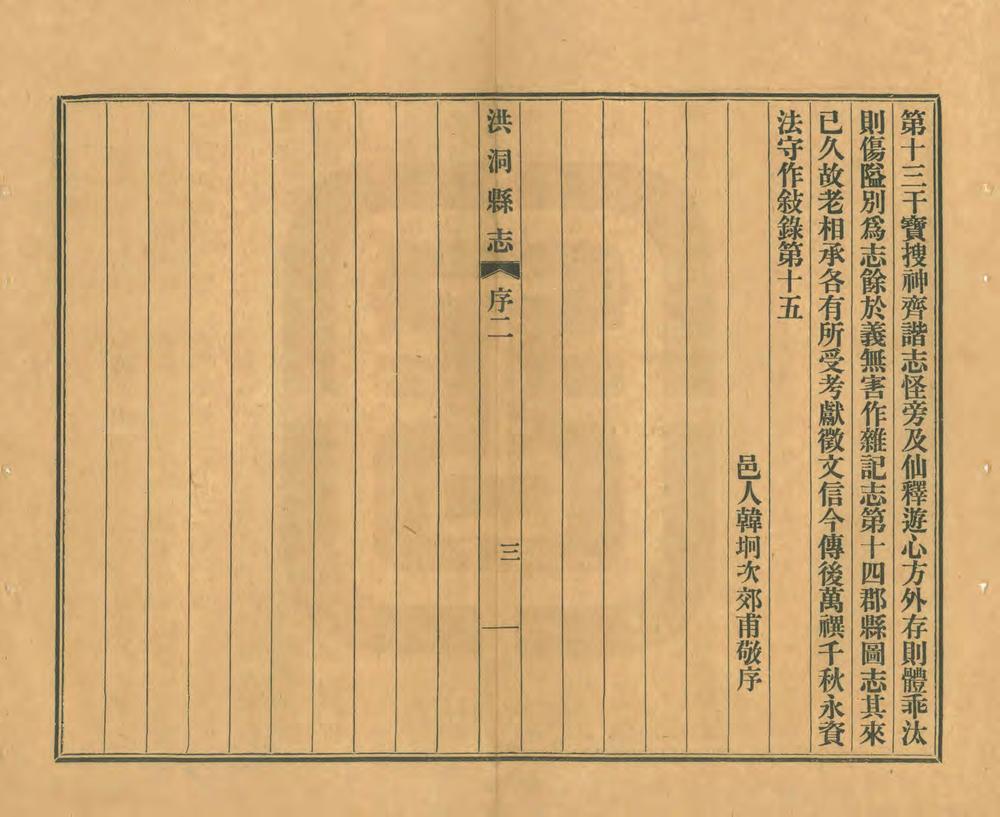 第十三干寶搜神齊諧志怪旁及仙釋遊心方外存則體乖汰
則傷隘別爲志餘於義無害作雜記志第十四郡縣圖志其來
已久故老相承各有所受考獻徵文信今傳後萬禩千秋永資
法守作敍錄第十五
邑人韓坰次郊甫敬序
洪洞縣志
序二
三